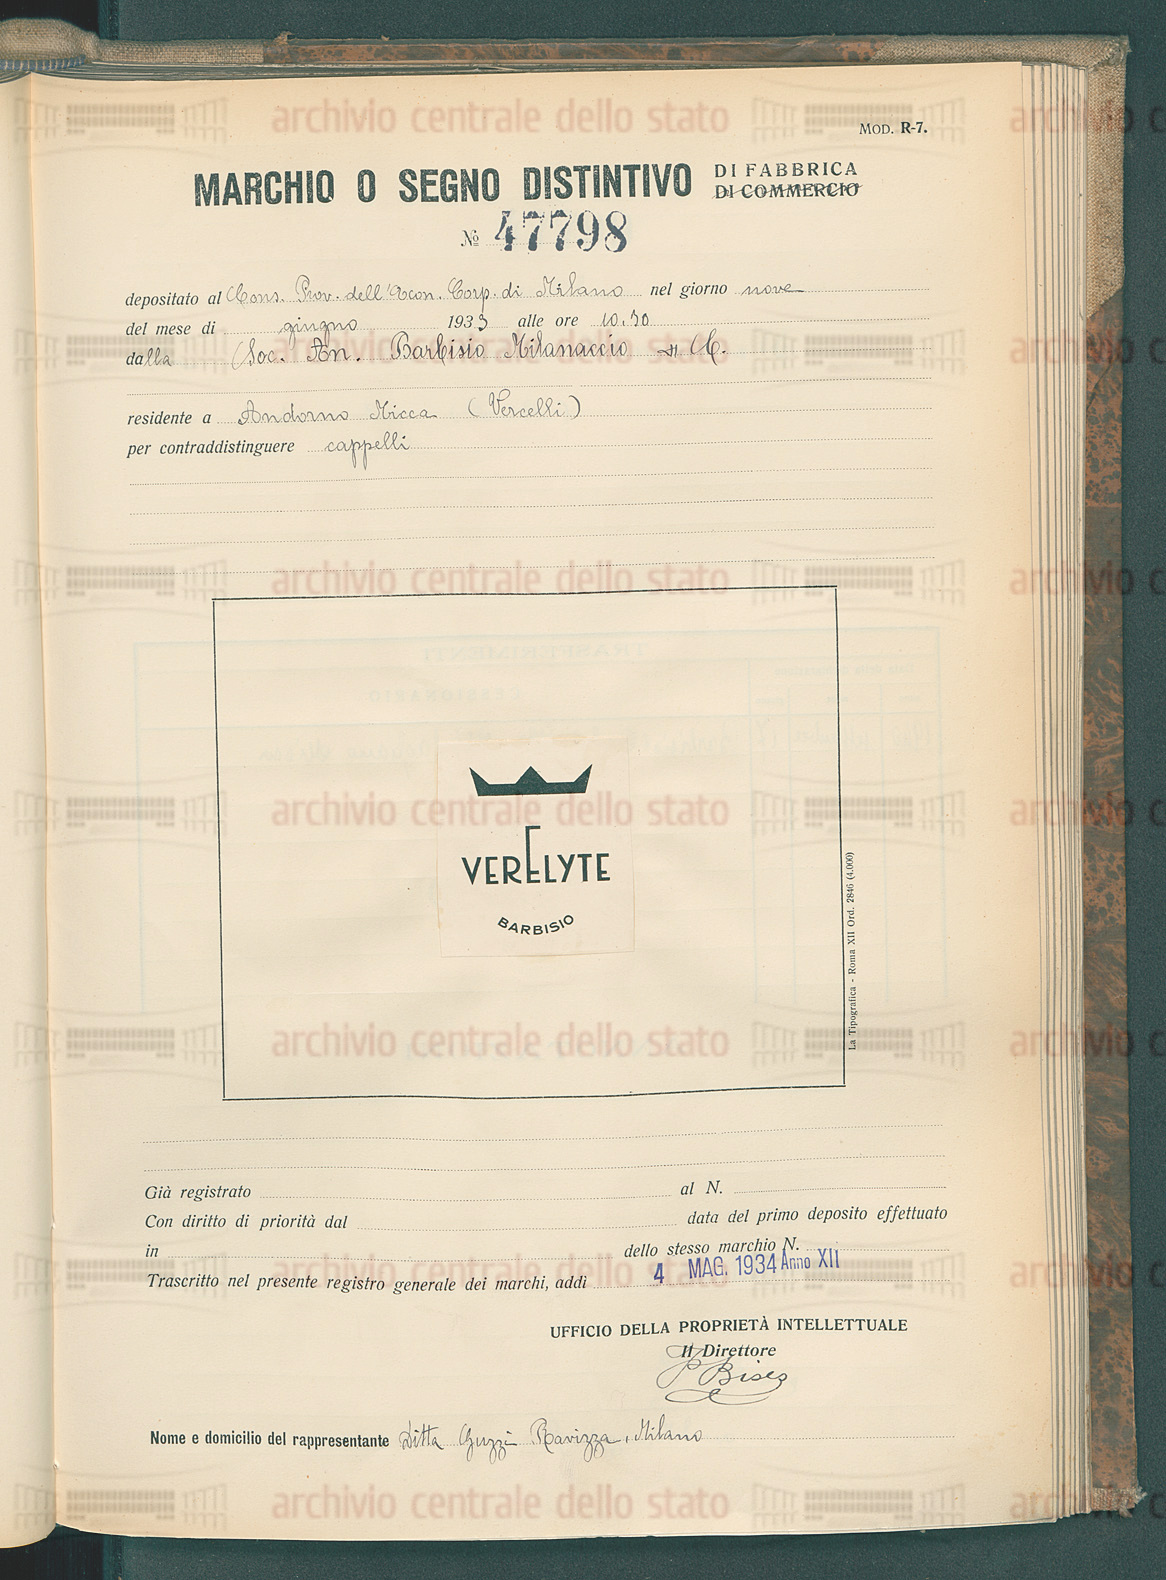 MOD. R-7.
MARCHIO O SEGNO DISTINTIVO DI FABBRICA
DI COMMERCIO
№ 47798
depositato al Cons. Prov. dell'Econ. Corp. di Milano nel giorno nove
del mese di giugno 1933 alle ore 10.30
dalla Soc. An. Barbisio Milanaccio & C.
residente a Andorno Micca (Vercelli)
per contraddistinguere cappelli
VERELYTE
BARBISIO
La Tipografica - Roma XII Ord. 2846 (4.000)
Già registrato al N.
Con diritto di priorità dal data del primo deposito effettuato
in dello stesso marchio N.
Trascritto nel presente registro generale dei marchi, addì 4 MAG. 1934 Anno XII
UFFICIO DELLA PROPRIETÀ INTELLETTUALE
Il Direttore
Nome e domicilio del rappresentante Ditta Guzzi Ravizza, Milano
archivio centrale dello stato